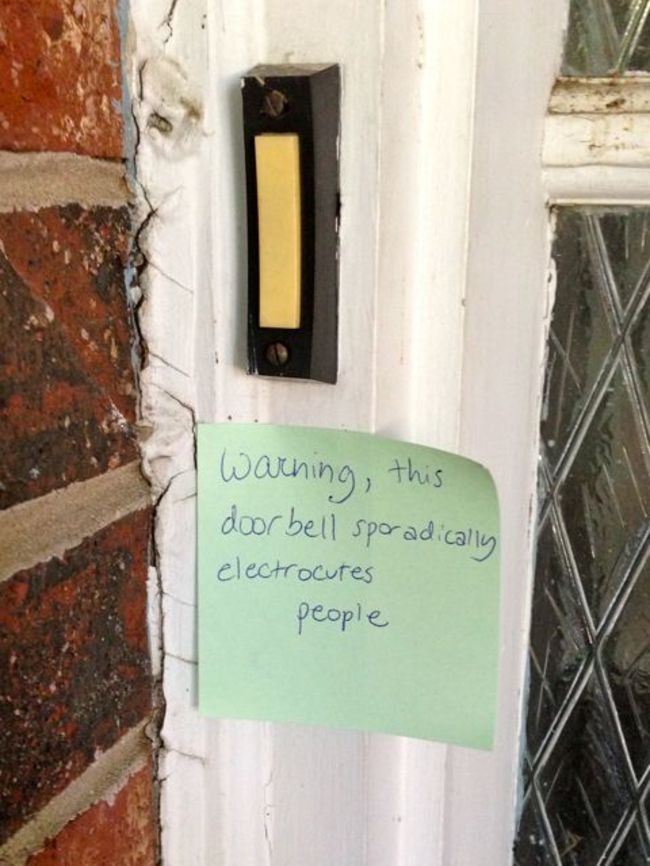 Warning, this
doorbell sporadically
electrocutes
people